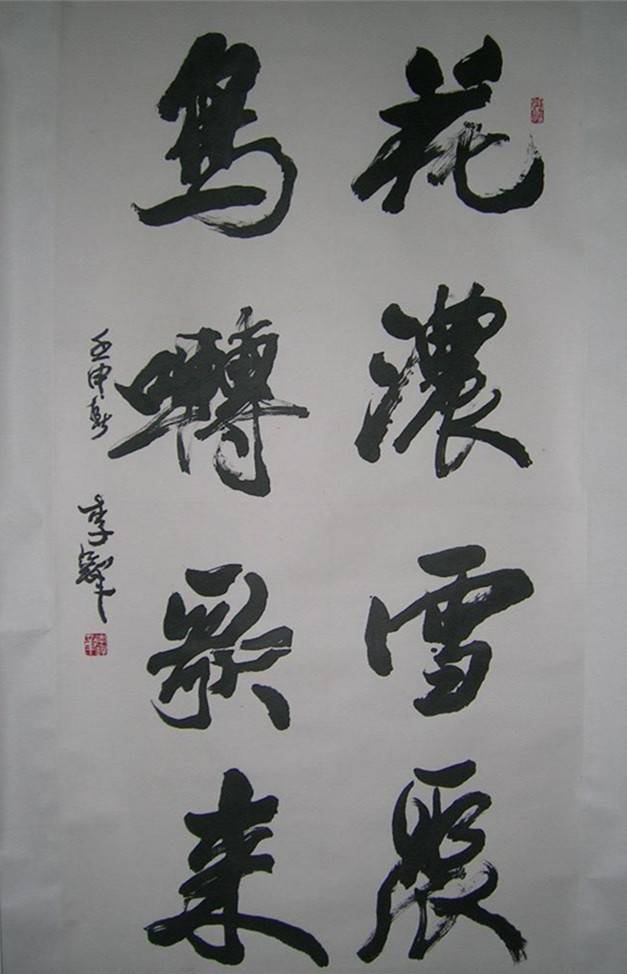 花濃雪聚
鳥囀歌來
壬申春
李鐸